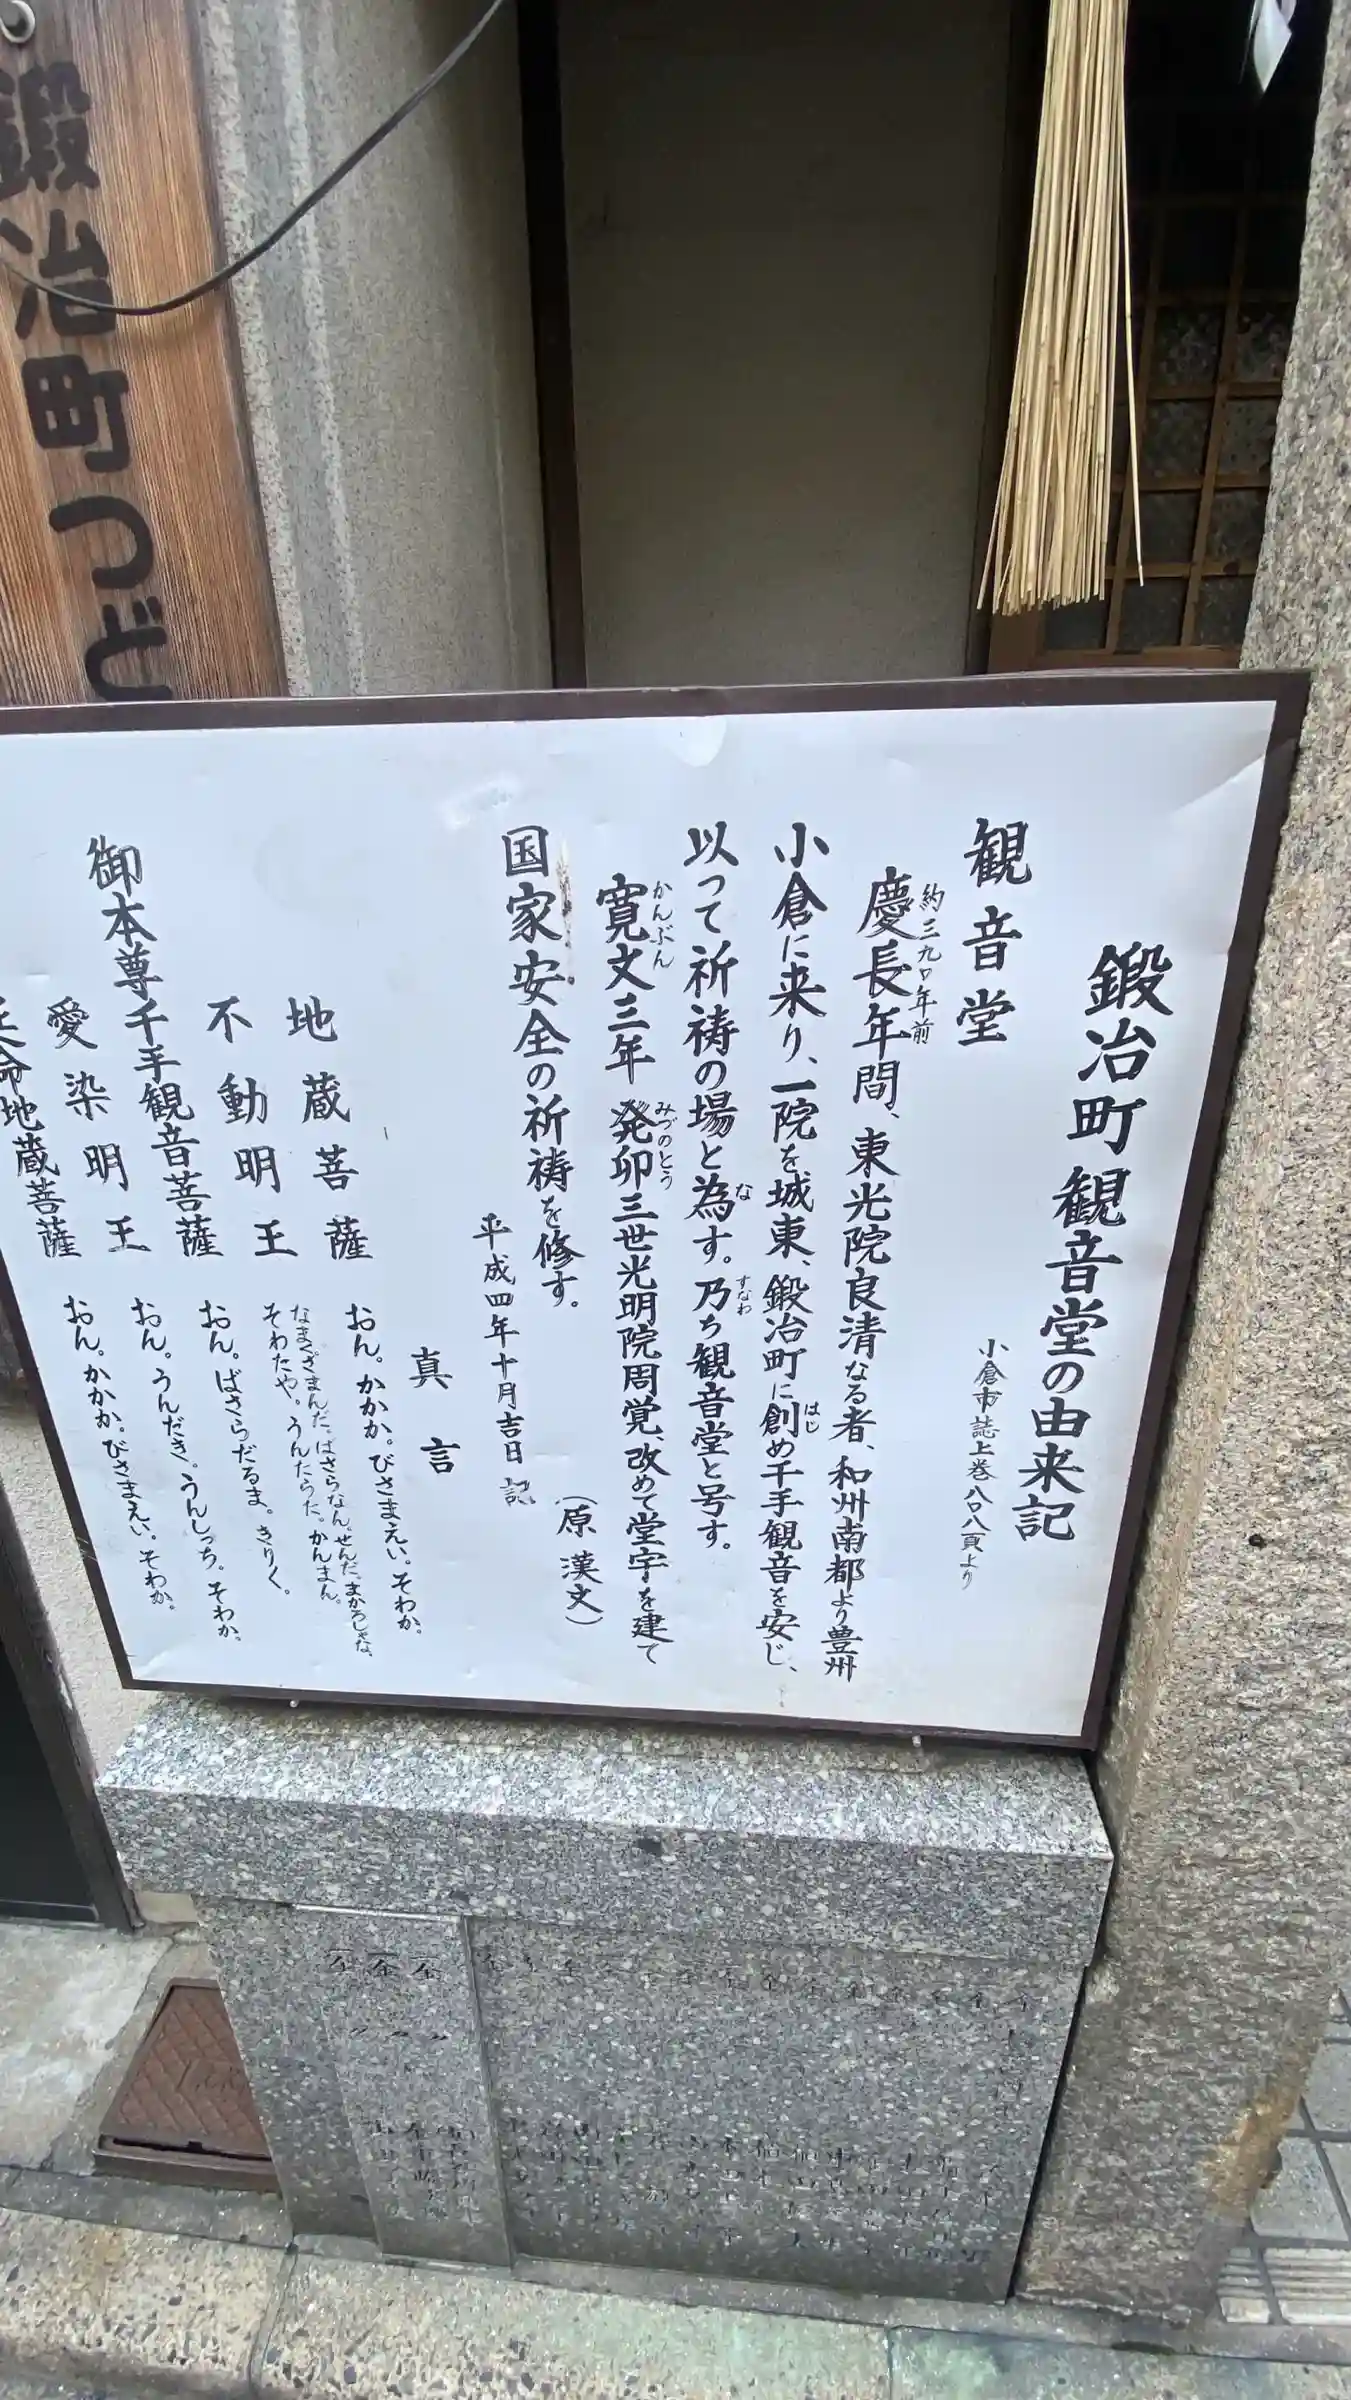 鍛冶町つど
鍛冶町観音堂の由来記
小倉市誌上巻八〇八頁より
観音堂
約三九〇年前
慶長年間、東光院良清なる者、和州南都より豊州
小倉に来り、一院を城東、鍛冶町に創め千手観音を安じ、
はじ
以って祈祷の場と為す。乃ち観音堂と号す。
な
すなわ
寛文三年 発卯三世光明院周覚、改めて堂宇を建て
かんぶん
みづのとう
国家安全の祈祷を修す。
(原漢文)
平成四年十月吉日 記
真言
地蔵菩薩 おん。かかか。びさまえい。そわか。
不動明王 なまくざまんだ。ばさらなん。せんだ。まかろしゃな、
そわたや。うんたらた。かんまん。
御本尊千手観音菩薩 おん。ばさらだるま。きりく。
愛染明王 おん。うんだき。うんしっち。そわか。
命地蔵菩薩 おん。かかか。びさまえい。そわか。